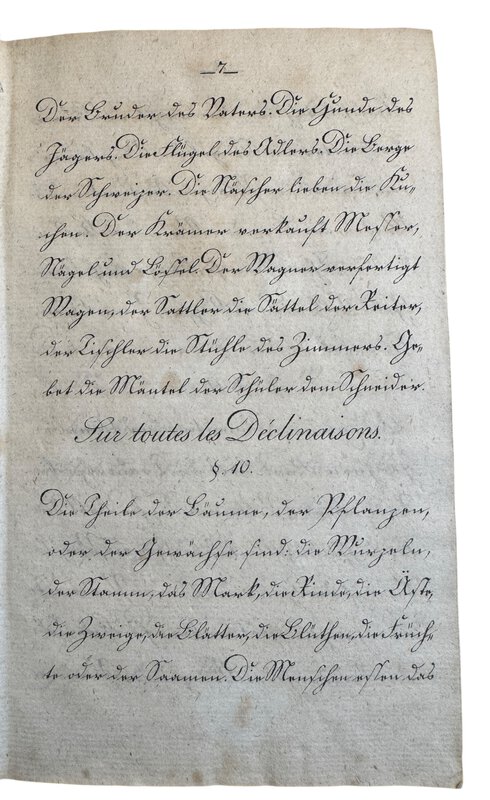 — 7 —
Der Bruder des Vaters. Die Hunde des
Jägers. Die Flügel des Adlers. Die Berge
der Schweizer. Die Näscher lieben die Ku-
chen. Der Krämer verkauft Messer,
Nägel und Löffel. Der Wagner verfertigt
Wagen, der Sattler die Sättel der Reiter,
der Tischler die Stühle des Zimmers. Ge-
bet die Mäntel der Schüler dem Schneider.
Sur toutes les Déclinaisons.
§. 10.
Die Theile der Bäume, der Pflanzen,
oder der Gewächse sind: die Wurzeln,
der Stamm, das Mark, die Rinde, die Äste,
die Zweige, die Blätter, die Blüthen, die Früch-
te oder der Saamen. Die Menschen essen das